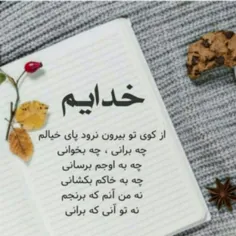 خدایم
از کوی تو بیرون نرود پای خیالم
چه برانی ، چه بخوانی
چه به اوجم برسانی
چه به خاکم بکشانی
نه من آنم که برنجم
نه تو آنی که برانی